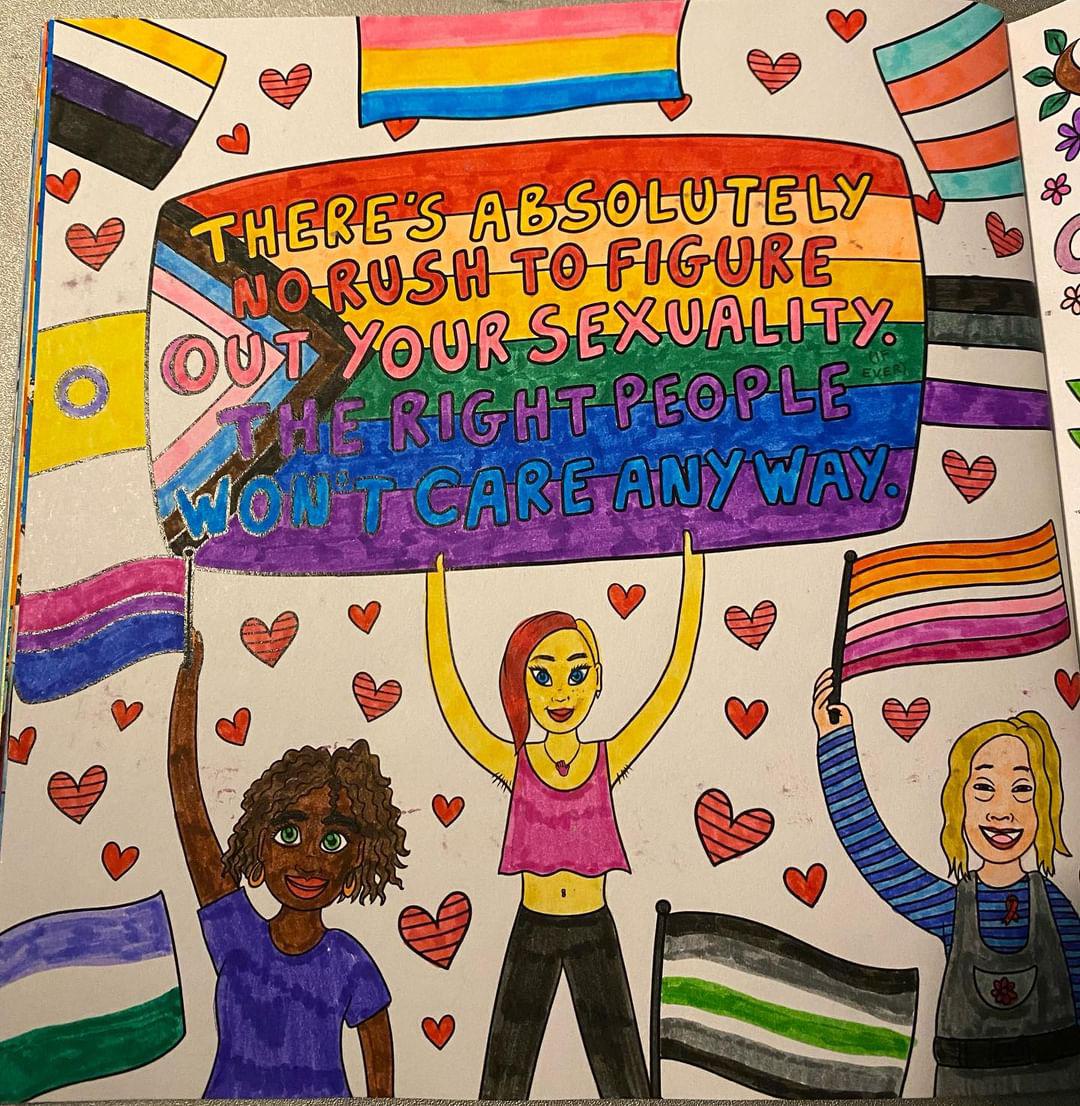 THERE'S ABSOLUTELY
NO RUSH TO FIGURE
OUT YOUR SEXUALITY.
(IF
EVER)
THE RIGHT PEOPLE
WON'T CARE ANYWAY.